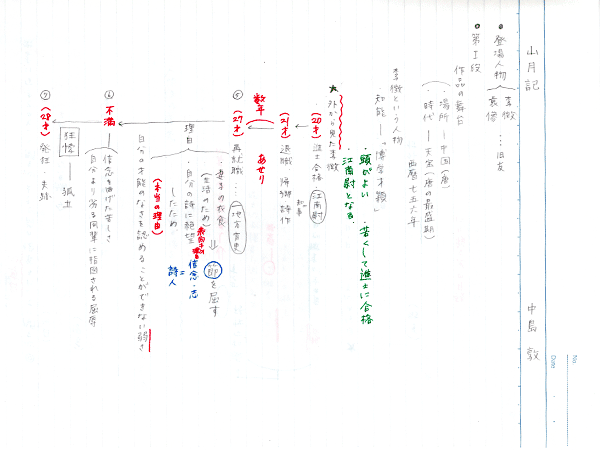 No
Date
山月記　中島敦
●登場人物
李徴
袁傪
…旧友
●第Ⅰ段
作品の舞台
・場所―中国(唐)
・時代―天宝(唐の最盛期)
西暦七五六年
李徴という人物
・知能―「博学才穎」
・頭がよい・若くして進士に合格
・江南尉となる。
★外から見た李徴
(20才)進士合格 江南尉
(21才)退職 帰郷 詩作
数年 あせり
⑤(27才)再就職…(地方官吏)
理由
・妻子の衣食
(生活のため)⇒節を屈す
信念・志
=
詩人
・自分の詩に絶望
したため
(本当の理由)
自分の才能のなさを認めることができない弱さ
⑥不満
信念を曲げた苦しさ
自分より劣る同輩に指図される屈辱
狂悖―孤立
⑦(28才)発狂・失踪